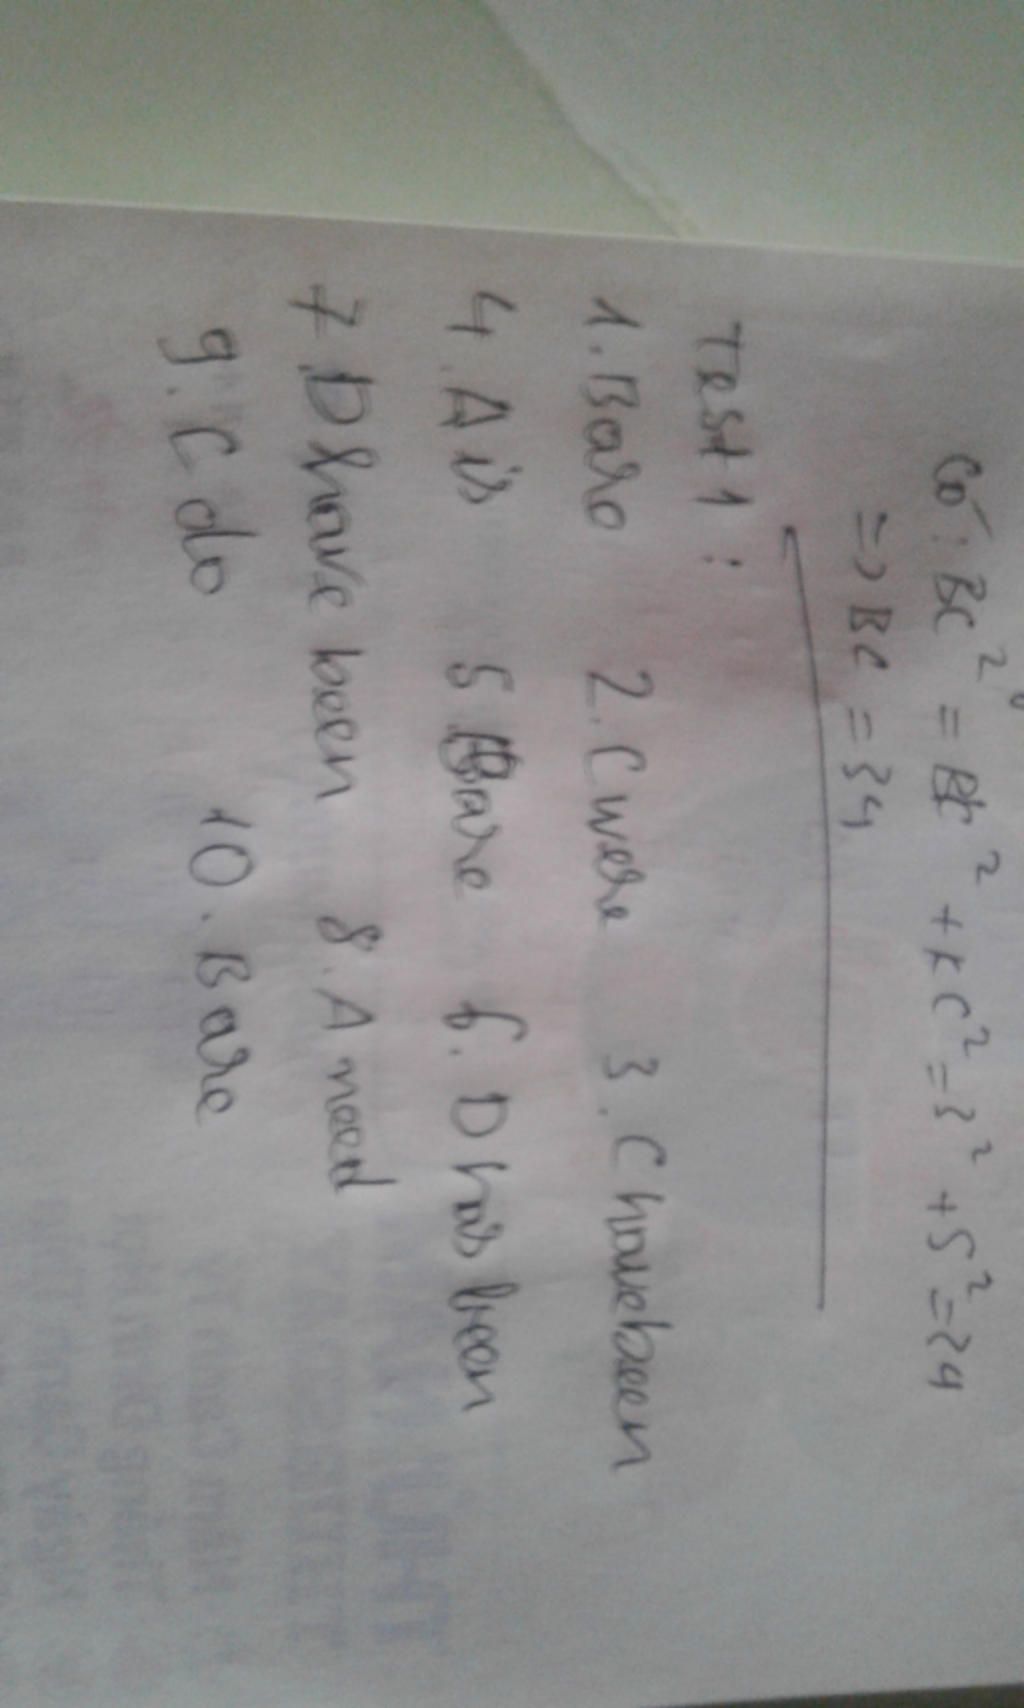 Có: BC² = BK² + KC² = 3² + 5² = 34
=> BC = 34
Test 1 :
1. B are 2. C were 3. C have been
4. A is 5 B are 6. D has been
7 D have been 8. A need
9. C do 10. B are